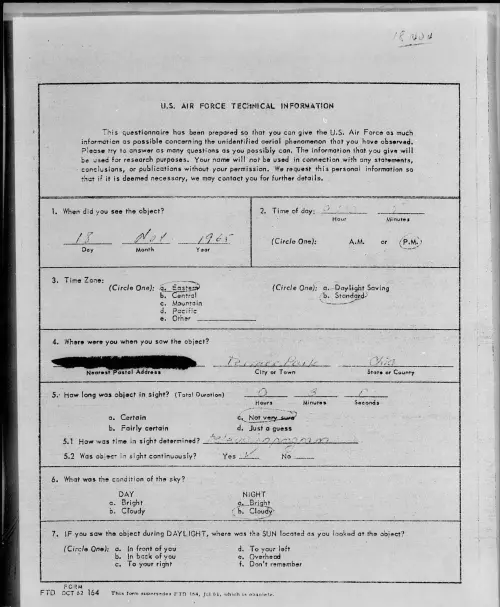 U.S. AIR FORCE TECHNICAL INFORMATION
This questionnaire has been prepared so that you can give the U.S. Air Force as much
information as possible concerning the unidentified aerial phenomenon that you have observed.
Please try to answer as many questions as you possibly can. The information that you give will
be used for research purposes. Your name will not be used in connection with any statements,
conclusions, or publications without your permission. We request this personal information so
that if it is deemed necessary, we may contact you for further details.
1. When did you see the object?
18 Nov 1965
Day Month Year
2. Time of day:
Hour Minutes
(Circle One): A.M. or P.M.
3. Time Zone:
(Circle One): a. Eastern
b. Central
c. Mountain
d. Pacific
e. Other
(Circle One): a. Daylight Saving
b. Standard
4. Where were you when you saw the object?
Park Ohio
Nearest Postal Address City or Town State or County
5. How long was object in sight? (Total Duration) 0 3 0
Hours Minutes Seconds
a. Certain c. Not very sure
b. Fairly certain d. Just a guess
5.1 How was time in sight determined?
5.2 Was object in sight continuously? Yes ✓ No
6. What was the condition of the sky?
DAY NIGHT
a. Bright a. Bright
b. Cloudy b. Cloudy
7. IF you saw the object during DAYLIGHT, where was the SUN located as you looked at the object?
(Circle One): a. In front of you d. To your left
b. In back of you e. Overhead
c. To your right f. Don't remember
FORM
FTD OCT 62 164 This form supersedes FTD 164, Jul 61, which is obsolete.